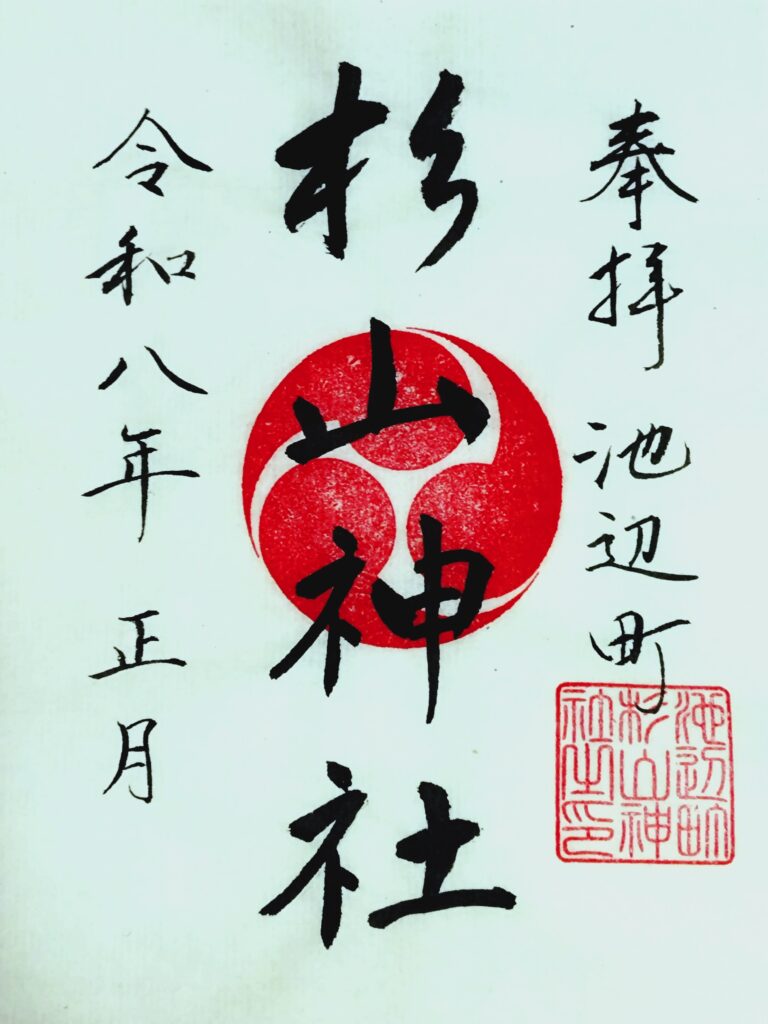 奉拝 池辺町
杉山神社
令和八年 正月
池辺町
杉山神
社之印